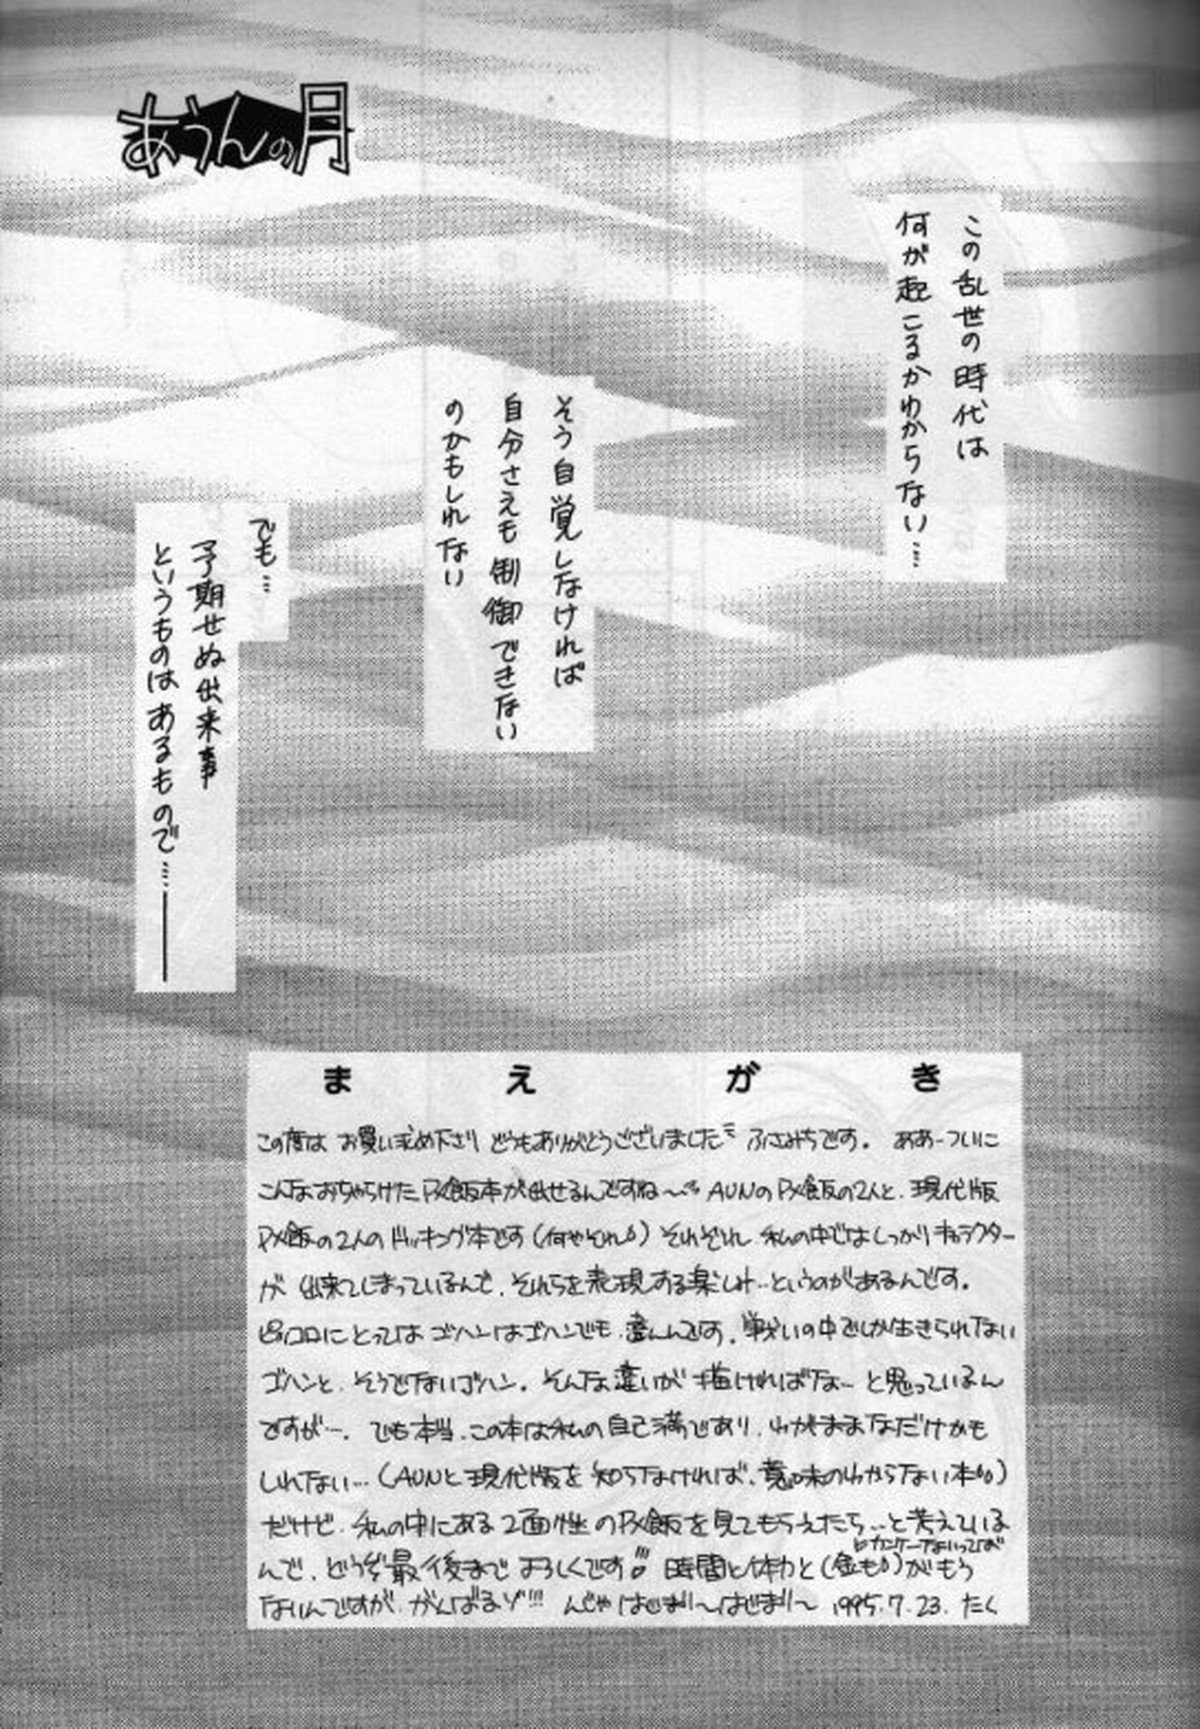 あうんの月
この乱世の時代は
何が起こるかわからない…
そう自覚しなければ
自分さえも制御できない
のかもしれない
でも…
予期せぬ出来事
というものはあるもので……――
まえがき
この度は お買い求め下さり どうもありがとうございました ふさみちです。 ああーついに
こんなおちゃらけた P×飯本が出せるんですね〜 AUNのP×飯の2人と、現代版
P×飯の2人のドッキング本です(何やそれ) それぞれ、私の中ではしっかりキャラクター
が 出来てしまっているんで、それらを表現する楽しみ…というのがあるんです。
ピッコロにとっては ゴハンはゴハンでも、違うんです。戦いの中でしか生きられない
ゴハンと、そうでないゴハン。そんな違いが 描ければな… と思っているん
ですが…。でも本当、この本は私の自己満であり、わがままなだけかも
しれない…(AUNと現代版を知らなければ、意味のわからない本)
だけど、私の中にある2面性のP×飯を見てもらえたら…と考えている
んで、どうぞ最後まで よろしくです!! 時間と体力と(金も)がもう
カンケーないってば
ないんですが、がんばるゾ!!! んじゃ はじまり〜はじまり〜 1995.7.23. たく